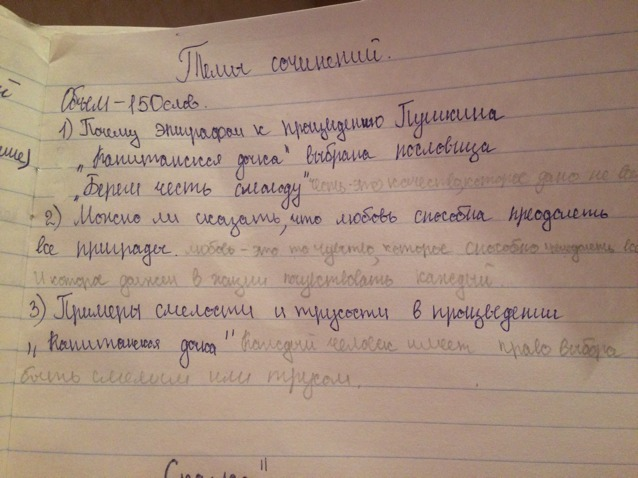 Темы сочинений.
Объем - 150 слов.
1) Почему эпиграфом к произведению Пушкина
„Капитанская дочка" выбрана пословица
„Береги честь смолоду" честь - это качество, которое дано не
2) Можно ли сказать, что любовь способна преодолеть
все преграды. любовь - это то чувство, которое способно
и которое должен в жизни почувствовать каждый.
3) Примеры смелости и трусости в произведении
„Капитанская дочка" каждый человек имеет право выбора
быть смелым или трусом.